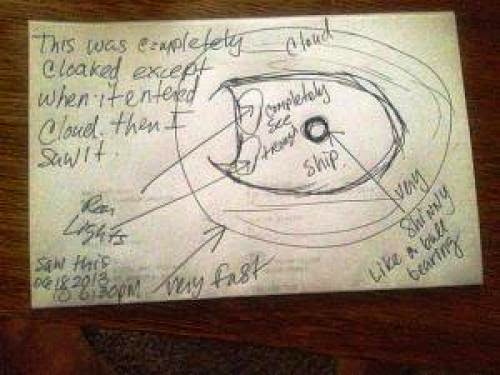 This was completely
Cloaked except
when it entered
Cloud. then I
Saw It.
Cloud
completely
see
ship.
Rear
Lights
very
Shinny
Like a ball
bearing
Saw this
06182013
very fast